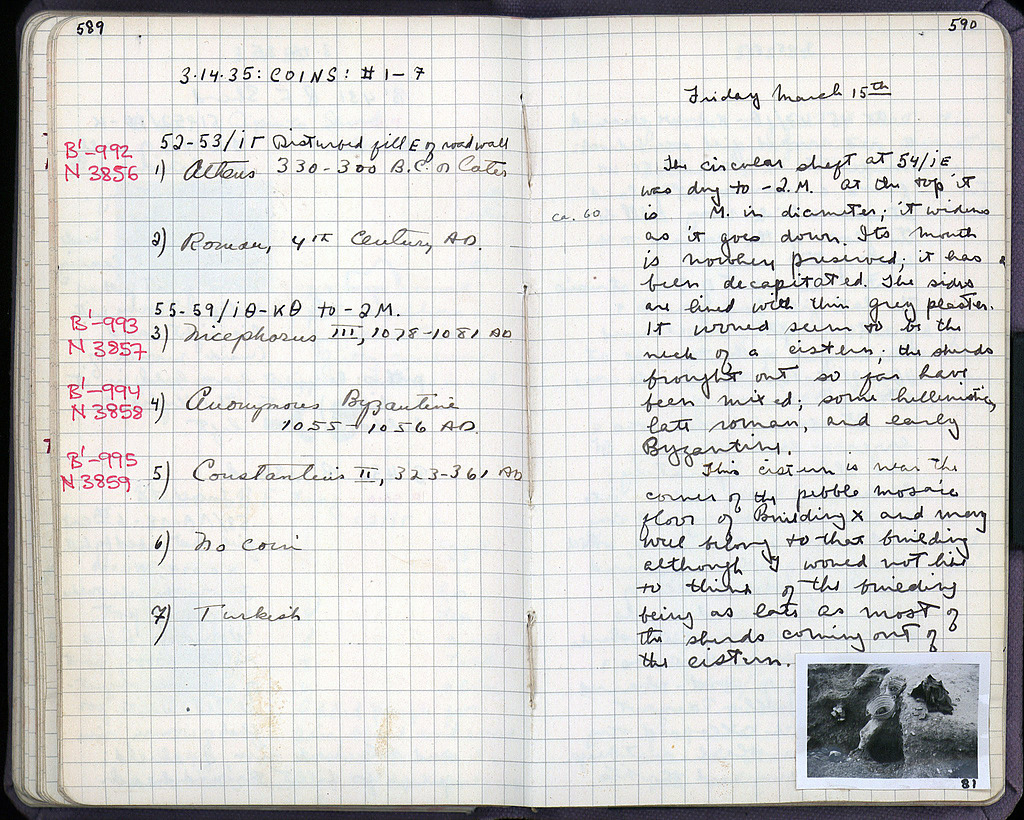 589
3·14·35: COINS: # 1-7
52-53/ιΓ Disturbed fill E of road wall
B'-992
N 3856
1) Athens 330-300 B.C. or Later
2) Roman, 4th Century A.D.
55-59/ιθ-κθ to -2M.
B'-993
N 3857
3) Nicephorus III, 1078-1081 AD
B'-994
N 3858
4) Anonymous Byzantine
1055-1056 AD.
B'-995
N 3859
5) Constantius II, 323-361 AD
6) No coin
7) Turkish
590
Friday March 15th
The circular shaft at 54/ιε
was dug to -2.M. At the top it
ca. 60
is M. in diameter; it widens
as it goes down. Its mouth
is nowhere preserved; it has
been decapitated. The sides
are lined with thin grey plaster.
It would seem to be the
neck of a cistern; the sherds
brought out so far have
been mixed; some hellenistic,
late roman, and early
Byzantine.
This cistern is near the
corner of the pebble mosaic
floor of Building X and may
well belong to that building
although I would not like
to think of the building
being as late as most of
the sherds coming out of
the cistern.
81